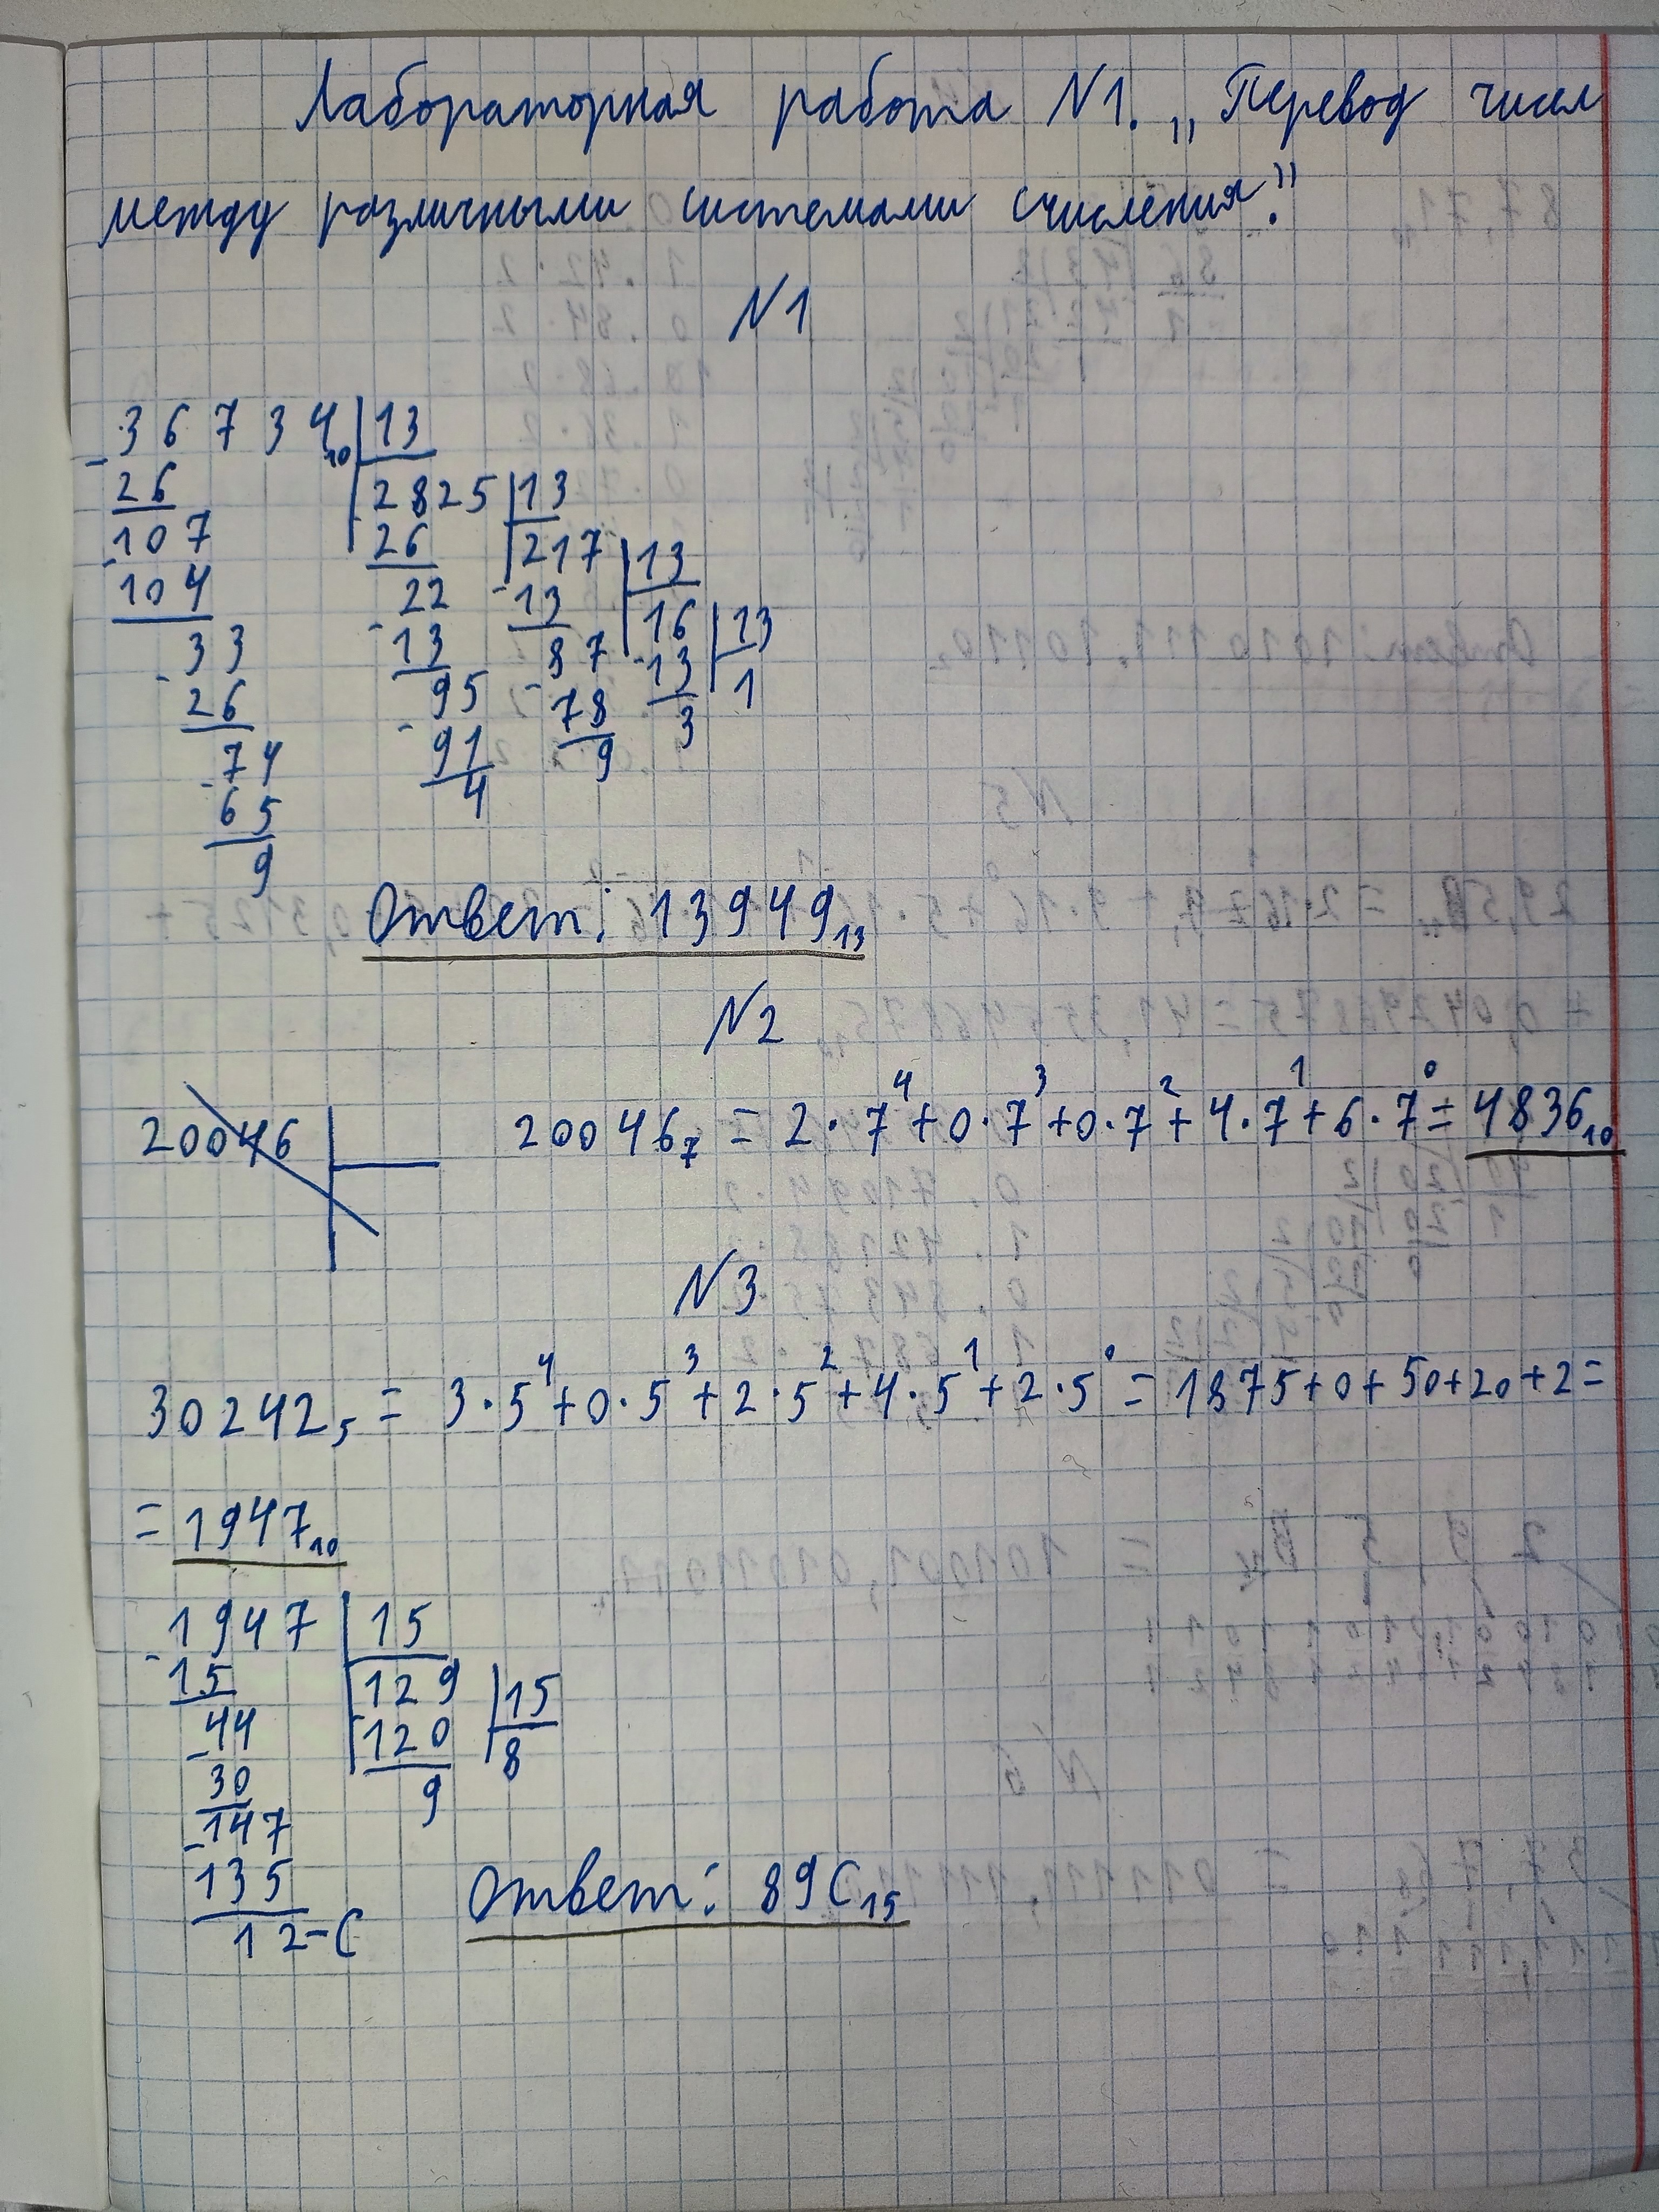 Лабораторная работа N1. „Перевод чисел
между различными системами счисления."
N1
36734₁₀ | 13
26 2825 | 13
107 26 217 | 13
104 22 13 16 | 13
33 13 87 13 1
26 95 78 3
74 91 9
65 4
9
Ответ: 13949₁₃
N2
20046 20046₇ = 2·7⁴+0·7³+0·7²+4·7¹+6·7⁰= 4836₁₀
N3
30242₅ = 3·5⁴+0·5³+2·5²+4·5¹+2·5⁰ = 1875+0+50+20+2=
= 1947₁₀
1947 | 15
15 129 | 15
44 120 8
30 9
147
135
12-C
Ответ: 89C₁₅